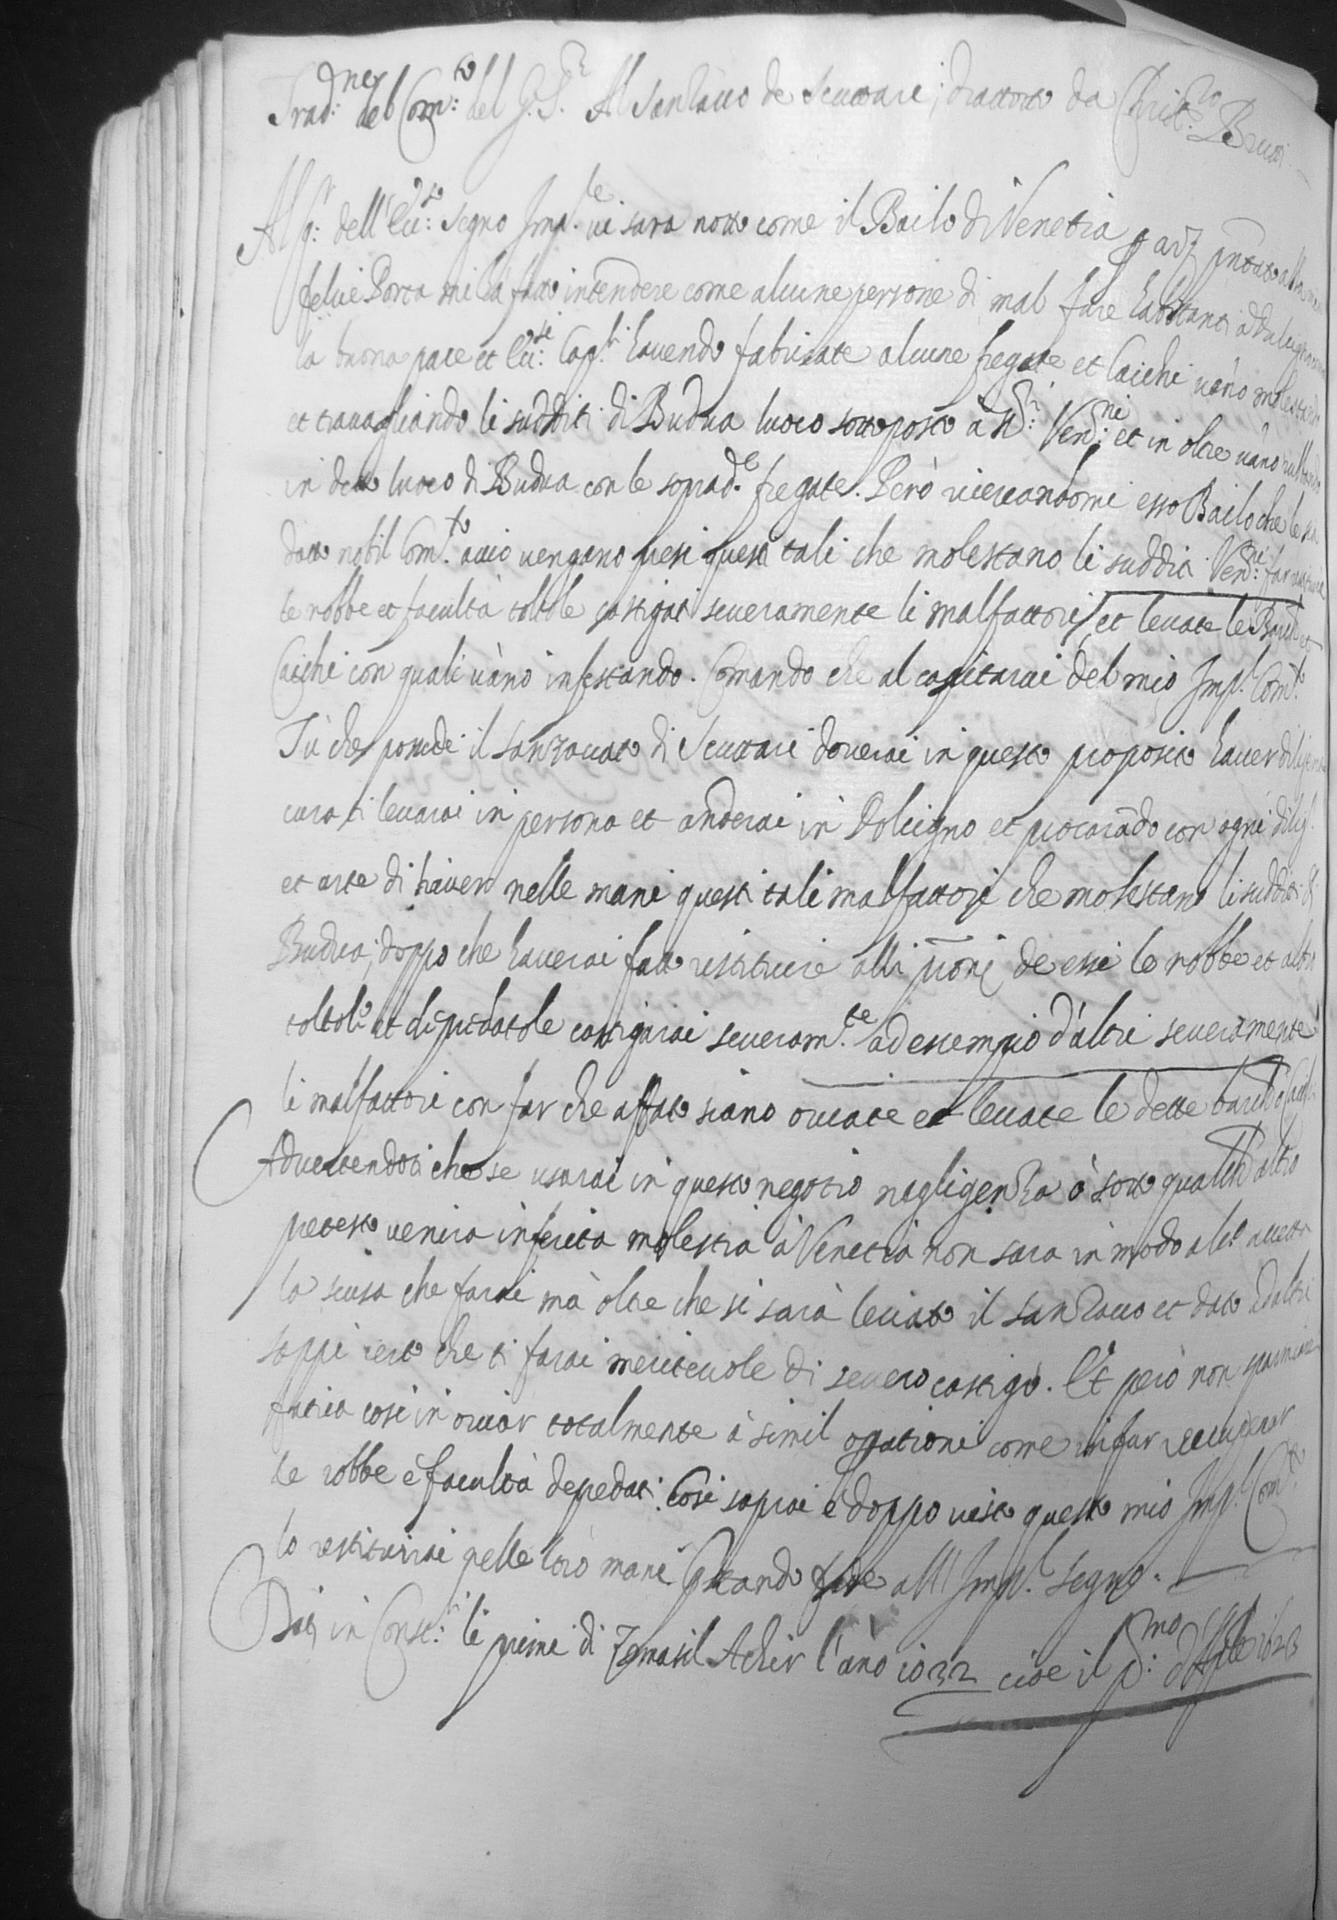 Trad.ne del Com.to del G. S.r Al Sanzacco de Scuttari; tradotto da Christ.ro Bruti
Al g. dell'Ecc.so segno Imp.le ui sara noto come il Bailo di Venetia p arz pntato alla mia
felice Porta mi hà fatto intendere come alcune persone di mal fare habitanti a Dulcigno
la buona pace et Ecc.si Cap.li hauendo fabricate alcune fregate et Caichi uàno molestando
et trauagliando li sudditi di Budua luoco sottoposto à S.ri Ven.ni et in oltre uàno
in detto luoco di Budua con le soprad.e fregate. Però ricercandomi esso Bailo che le sia
dato nobil Com.to acciò vengano presi questi tali che molestano li sudditi Ven.ni far restituir
le robbe et facultà toltole castigati seueramente li malfattori, et leuate le Barche et
Caichi con quali uàno infestando. Comando che al capitarai del mio Imp.l Com.to
Tù che possiede il sanzaccato di Scuttari douerai in questo proposito hauer diligente
cura ti leuarai in persona et anderai in Dolcigno et procurado con ogni dilig.
et arte di hauer nelle mani questi tali malfattori che molestano li sudditi di
Budua; doppo che hauerai fatto restituire alli proni de essi le robbe et altro
toltoli et depredatole castigarai seueram.te ad essempio d'altri seueramente
li malfattori con far che affato siano ouiate et leuate le dette barche
Aduertendoti che se usarai in questo negotio negligenza ò sotto qualche altro
pretesto venira inferita molestia à Venetia non sara in modo alc.o accettata
la scusa che farai mà oltre che si sarà leuato il sanzacco et dato ad altri
sappi certo che ti farai meriteuole di seuero castigo. Et però non sparmiare
fatica cosi in ouiar totalmente à simil operationi come in far recuperar
le robbe e facultà depredati. Cosi saprai e doppo uisto questo mio Imp.l Com.to
lo restituirai nelle loro mani prestando fede all'Imp.l segno.
Dat. in Const.li li primi di Zemasil Achir l'àno 1032 cioe il p.mo d'Aple 1623